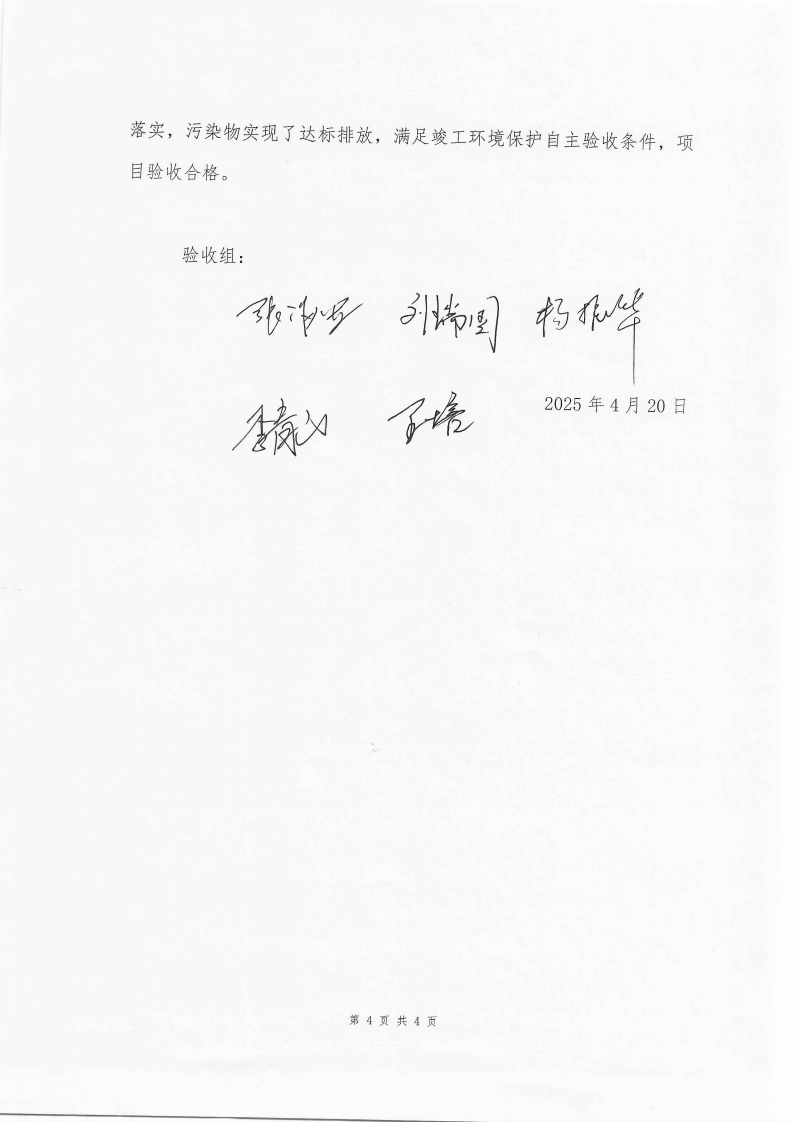 落实，污染物实现了达标排放，满足竣工环境保护自主验收条件，项
目验收合格。
验收组：
刘瑞国 杨振华
2025 年 4 月 20 日
王培
第 4 页 共 4 页